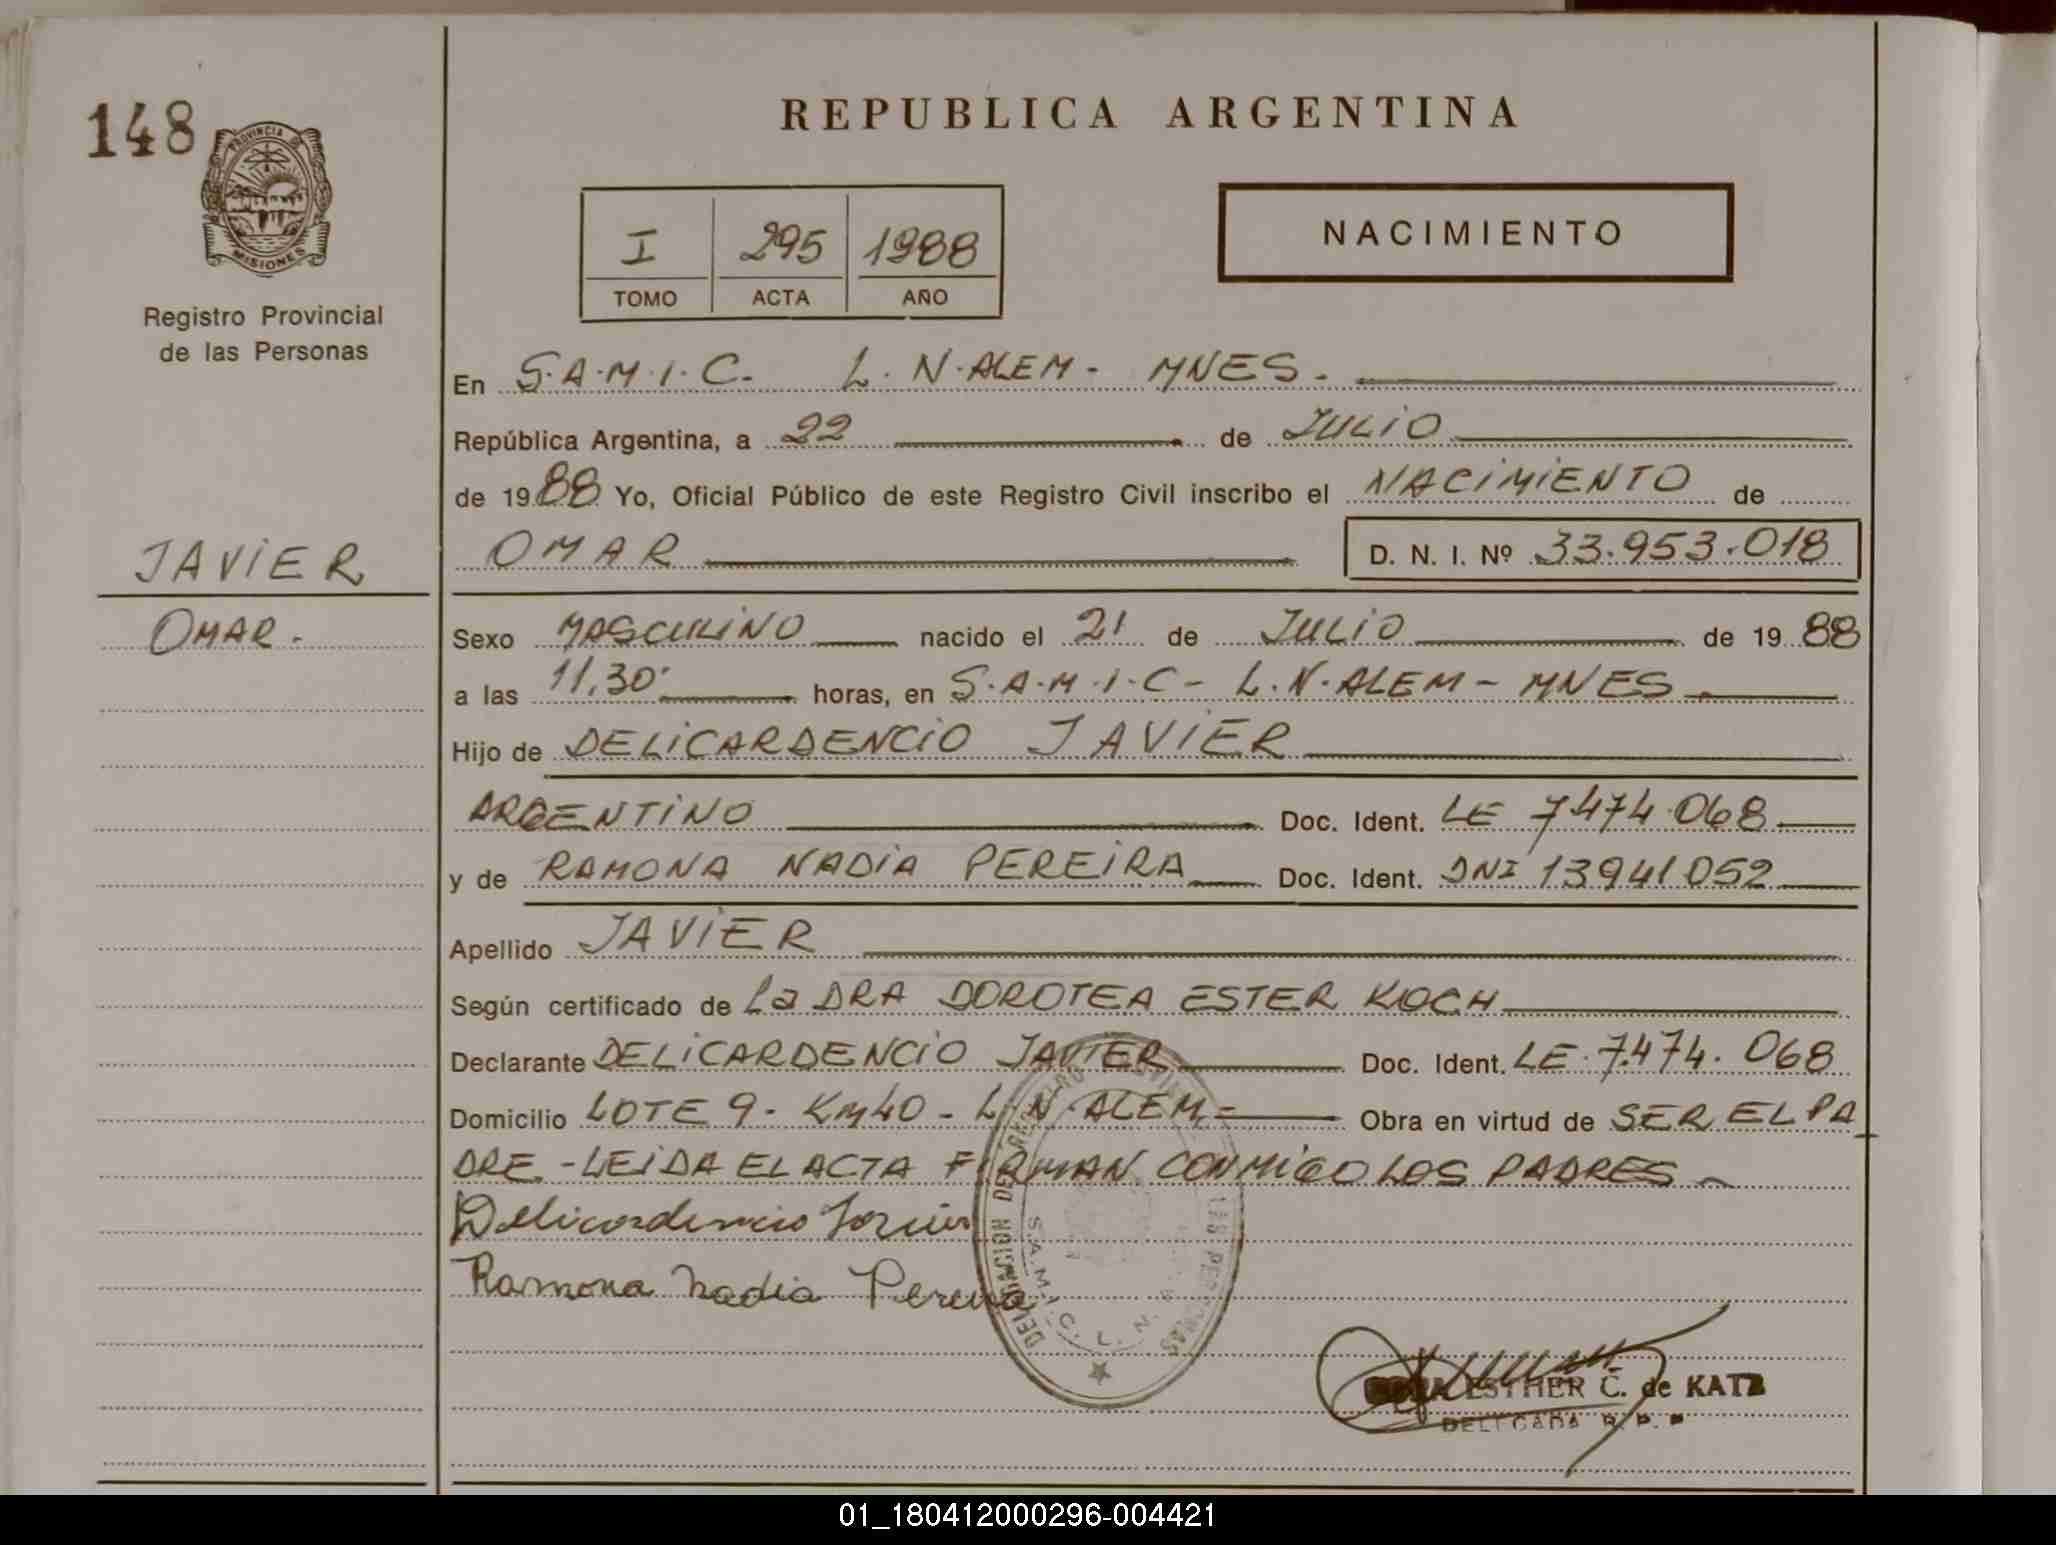 148
PROVINCIA DE
MISIONES
Registro Provincial
de las Personas
JAVIER
OMAR.-
REPUBLICA ARGENTINA
I 295 1988
TOMO ACTA AÑO
NACIMIENTO
En S.A.M.I.C. L.N.ALEM- MNES.-
República Argentina, a 22 de JULIO
de 1988 Yo, Oficial Público de este Registro Civil inscribo el NACIMIENTO de
OMAR D. N. I. Nº 33.953.018
Sexo MASCULINO nacido el 21 de JULIO de 1988
a las 11,30' horas, en S.A.M.I.C- L.N.ALEM- MNES.-
Hijo de DELICARDENCIO JAVIER
ARGENTINO Doc. Ident. LE 7.474.068
y de RAMONA NADIA PEREIRA Doc. Ident. DNI 13941052
Apellido JAVIER
Según certificado de La DRA DOROTEA ESTER KOCH
Declarante DELICARDENCIO JAVIER Doc. Ident. LE.7.474.068
Domicilio LOTE 9- KM40- L.N.ALEM- Obra en virtud de SER EL PA
DRE -LEIDA EL ACTA FIRMAN CONMIGO LOS PADRES
Delicardencio Javier
Ramona Nadia Pereira
DELEGACION DEL REGISTRO PROVINCIAL DE LAS PERSONAS
S.A.M.I.C. L. N.
ESTHER C. de KATZ
DELEGADA R. P. P.
01_180412000296-004421